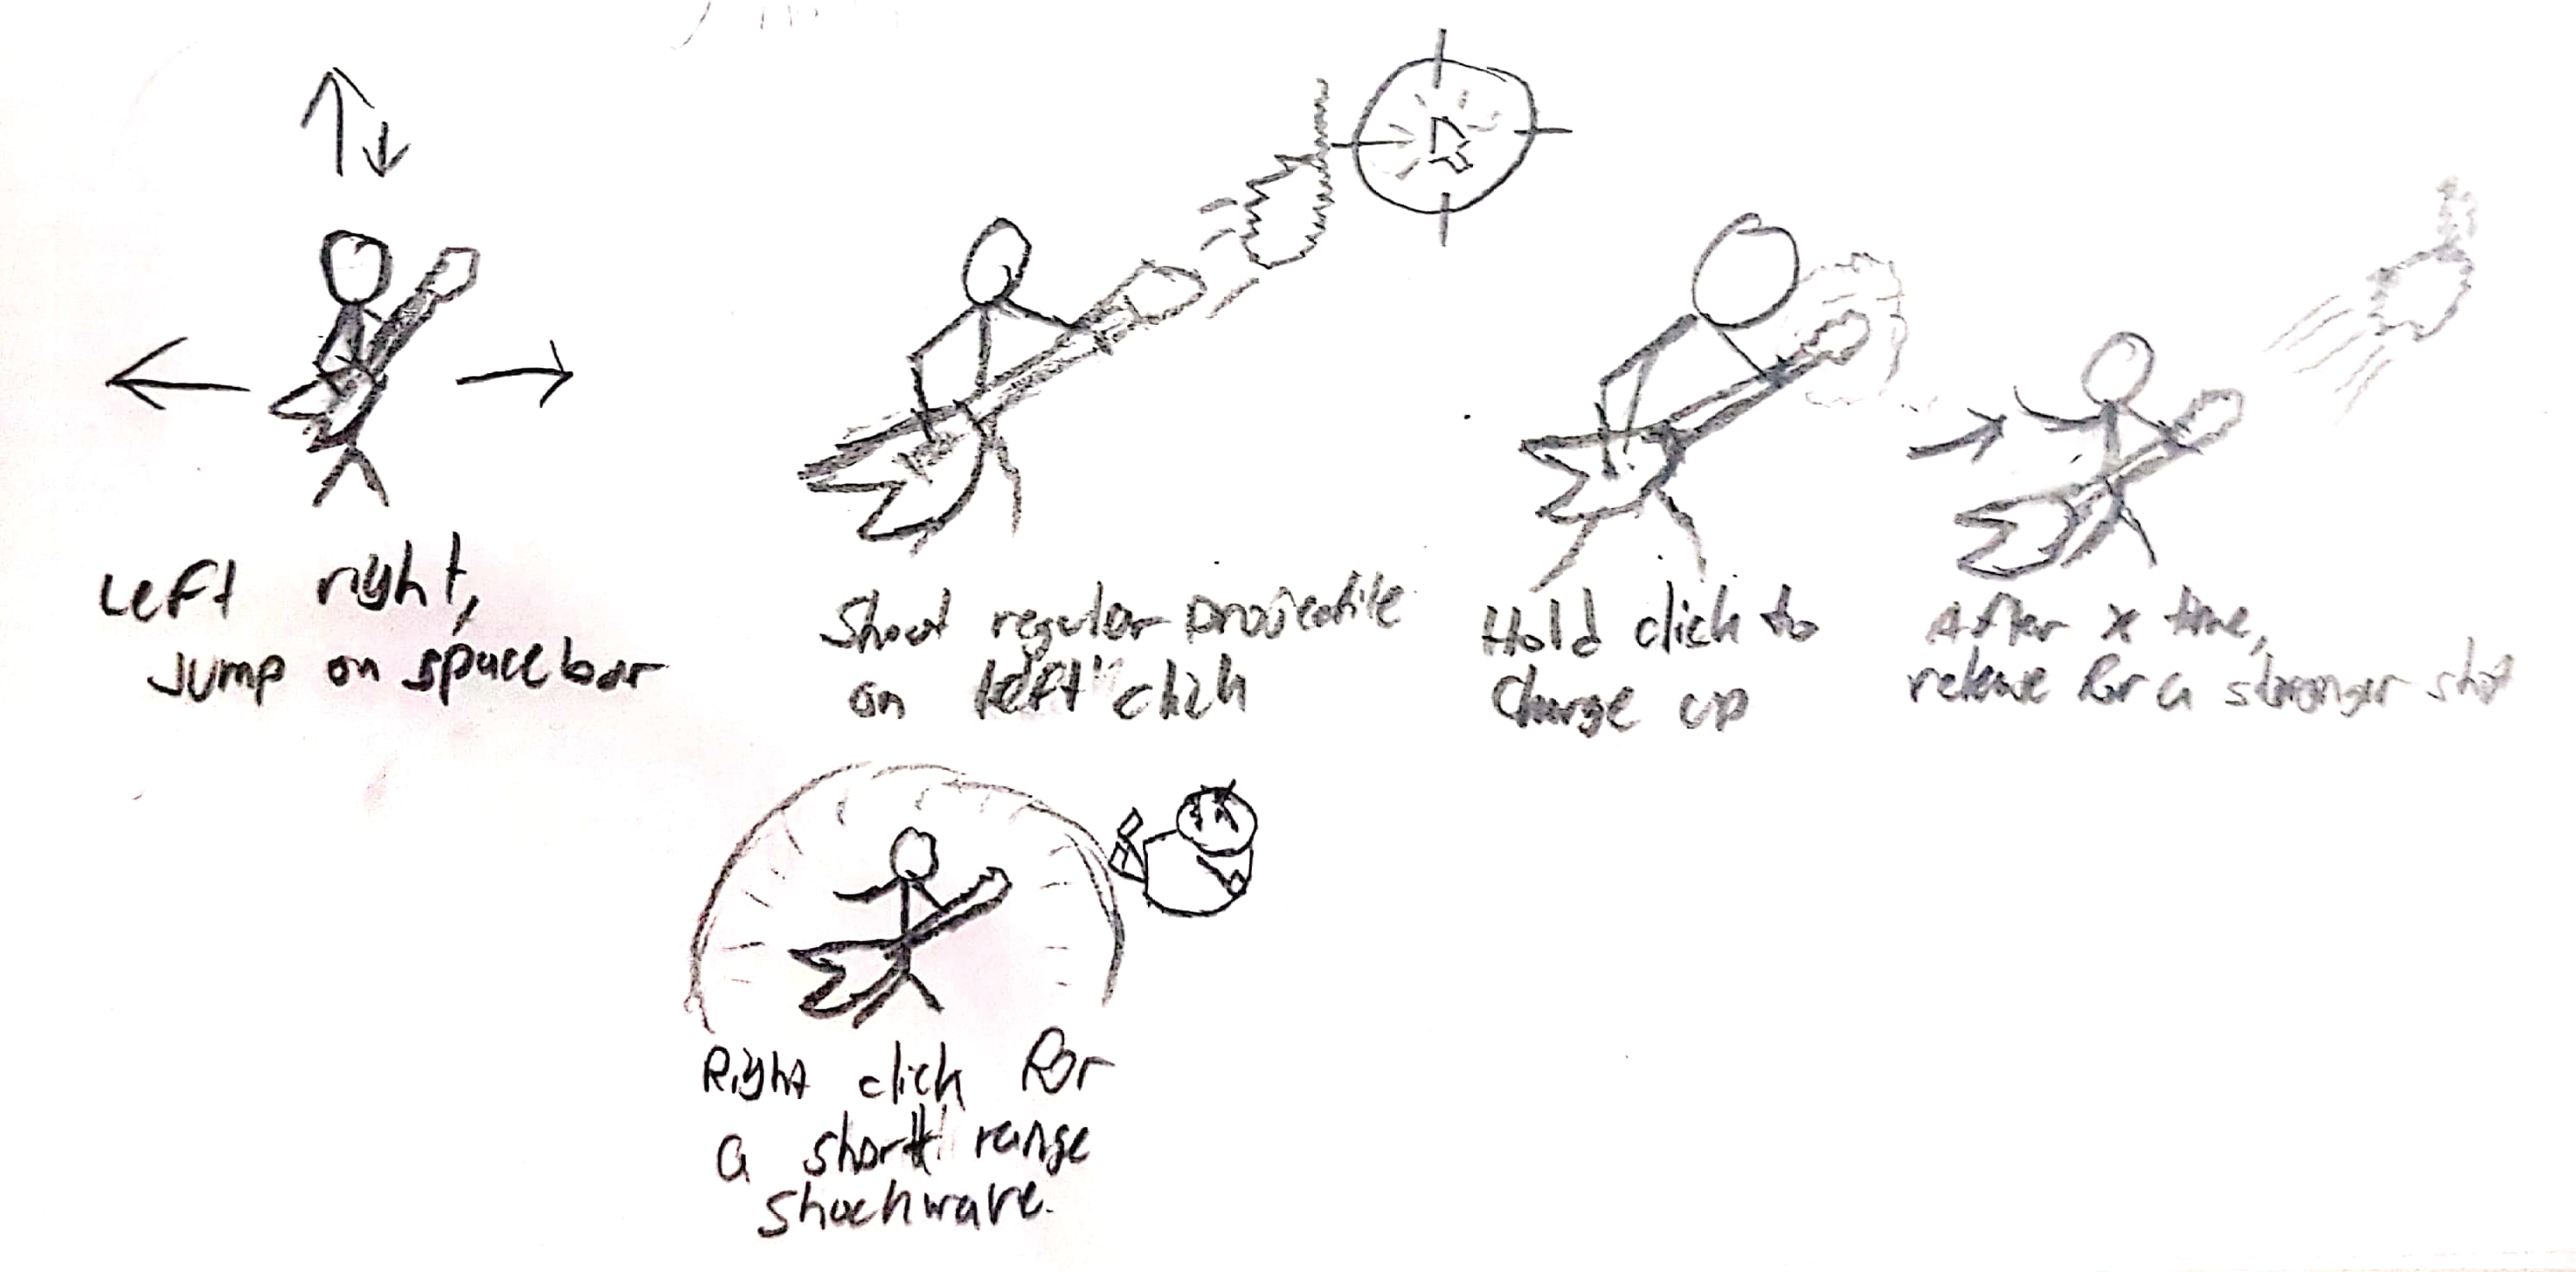 Left right,
Jump on spacebar
Shoot regular projectile
on left click
Hold click to
charge up
After x time,
release for a stronger shot
Right click for
a short range
shockwave.